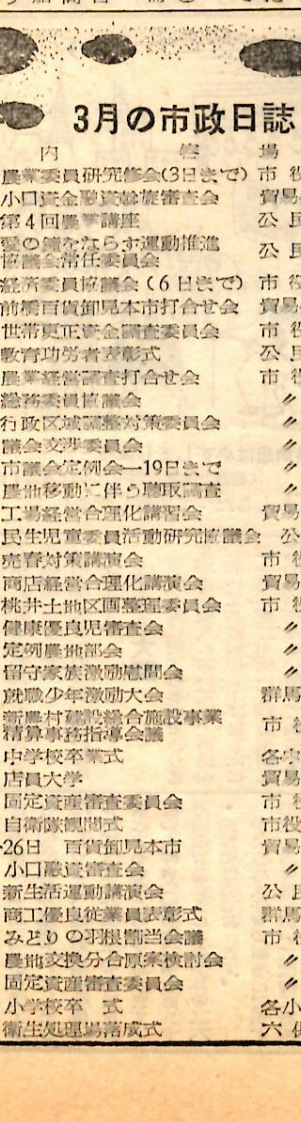 3月の市政日誌
内　容　場
農業委員研究修会(3日まで) 市役
小口資金融資斡旋審査会 貿易
第4回農業講座 公民
愛の鐘をならす運動推進
協議会常任委員会 公民
経済委員協議会(6日まで) 市役
前橋百貨卸見本市打合せ会 貿易
世帯更正資金調査委員会 市役
教育功労者表彰式 公民
農業経営調査打合せ会 市役
総務委員協議会 〃
行政区域調整対策委員会 〃
議会交渉委員会 〃
市議会定例会―19日まで 〃
農地移動に伴う聴取調査 〃
工場経営合理化講習会 貿易
民生児童委員活動研究協議会 公
売春対策講演会 市役
商店経営合理化講演会 貿易
桃井土地区画整理委員会 市役
健康優良児審査会 〃
定例農地部会 〃
留守家族激励慰問会 〃
就職少年激励大会 群馬
新農村建設総合施設事業
精算事務指導会議 市役
中学校卒業式 各中
店員大学 貿易
固定資産審査委員会 市役
自衛隊観閲式 市役
26日 百貨卸見本市 貿易
小口融資審査会 〃
新生活運動講演会 公民
商工優良従業員表彰式 群馬
みどりの羽根割当会議 市役
農地交換分合原案検討会 〃
固定資産審査委員会 〃
小学校卒　式 各小
衛生処理場落成式 六供